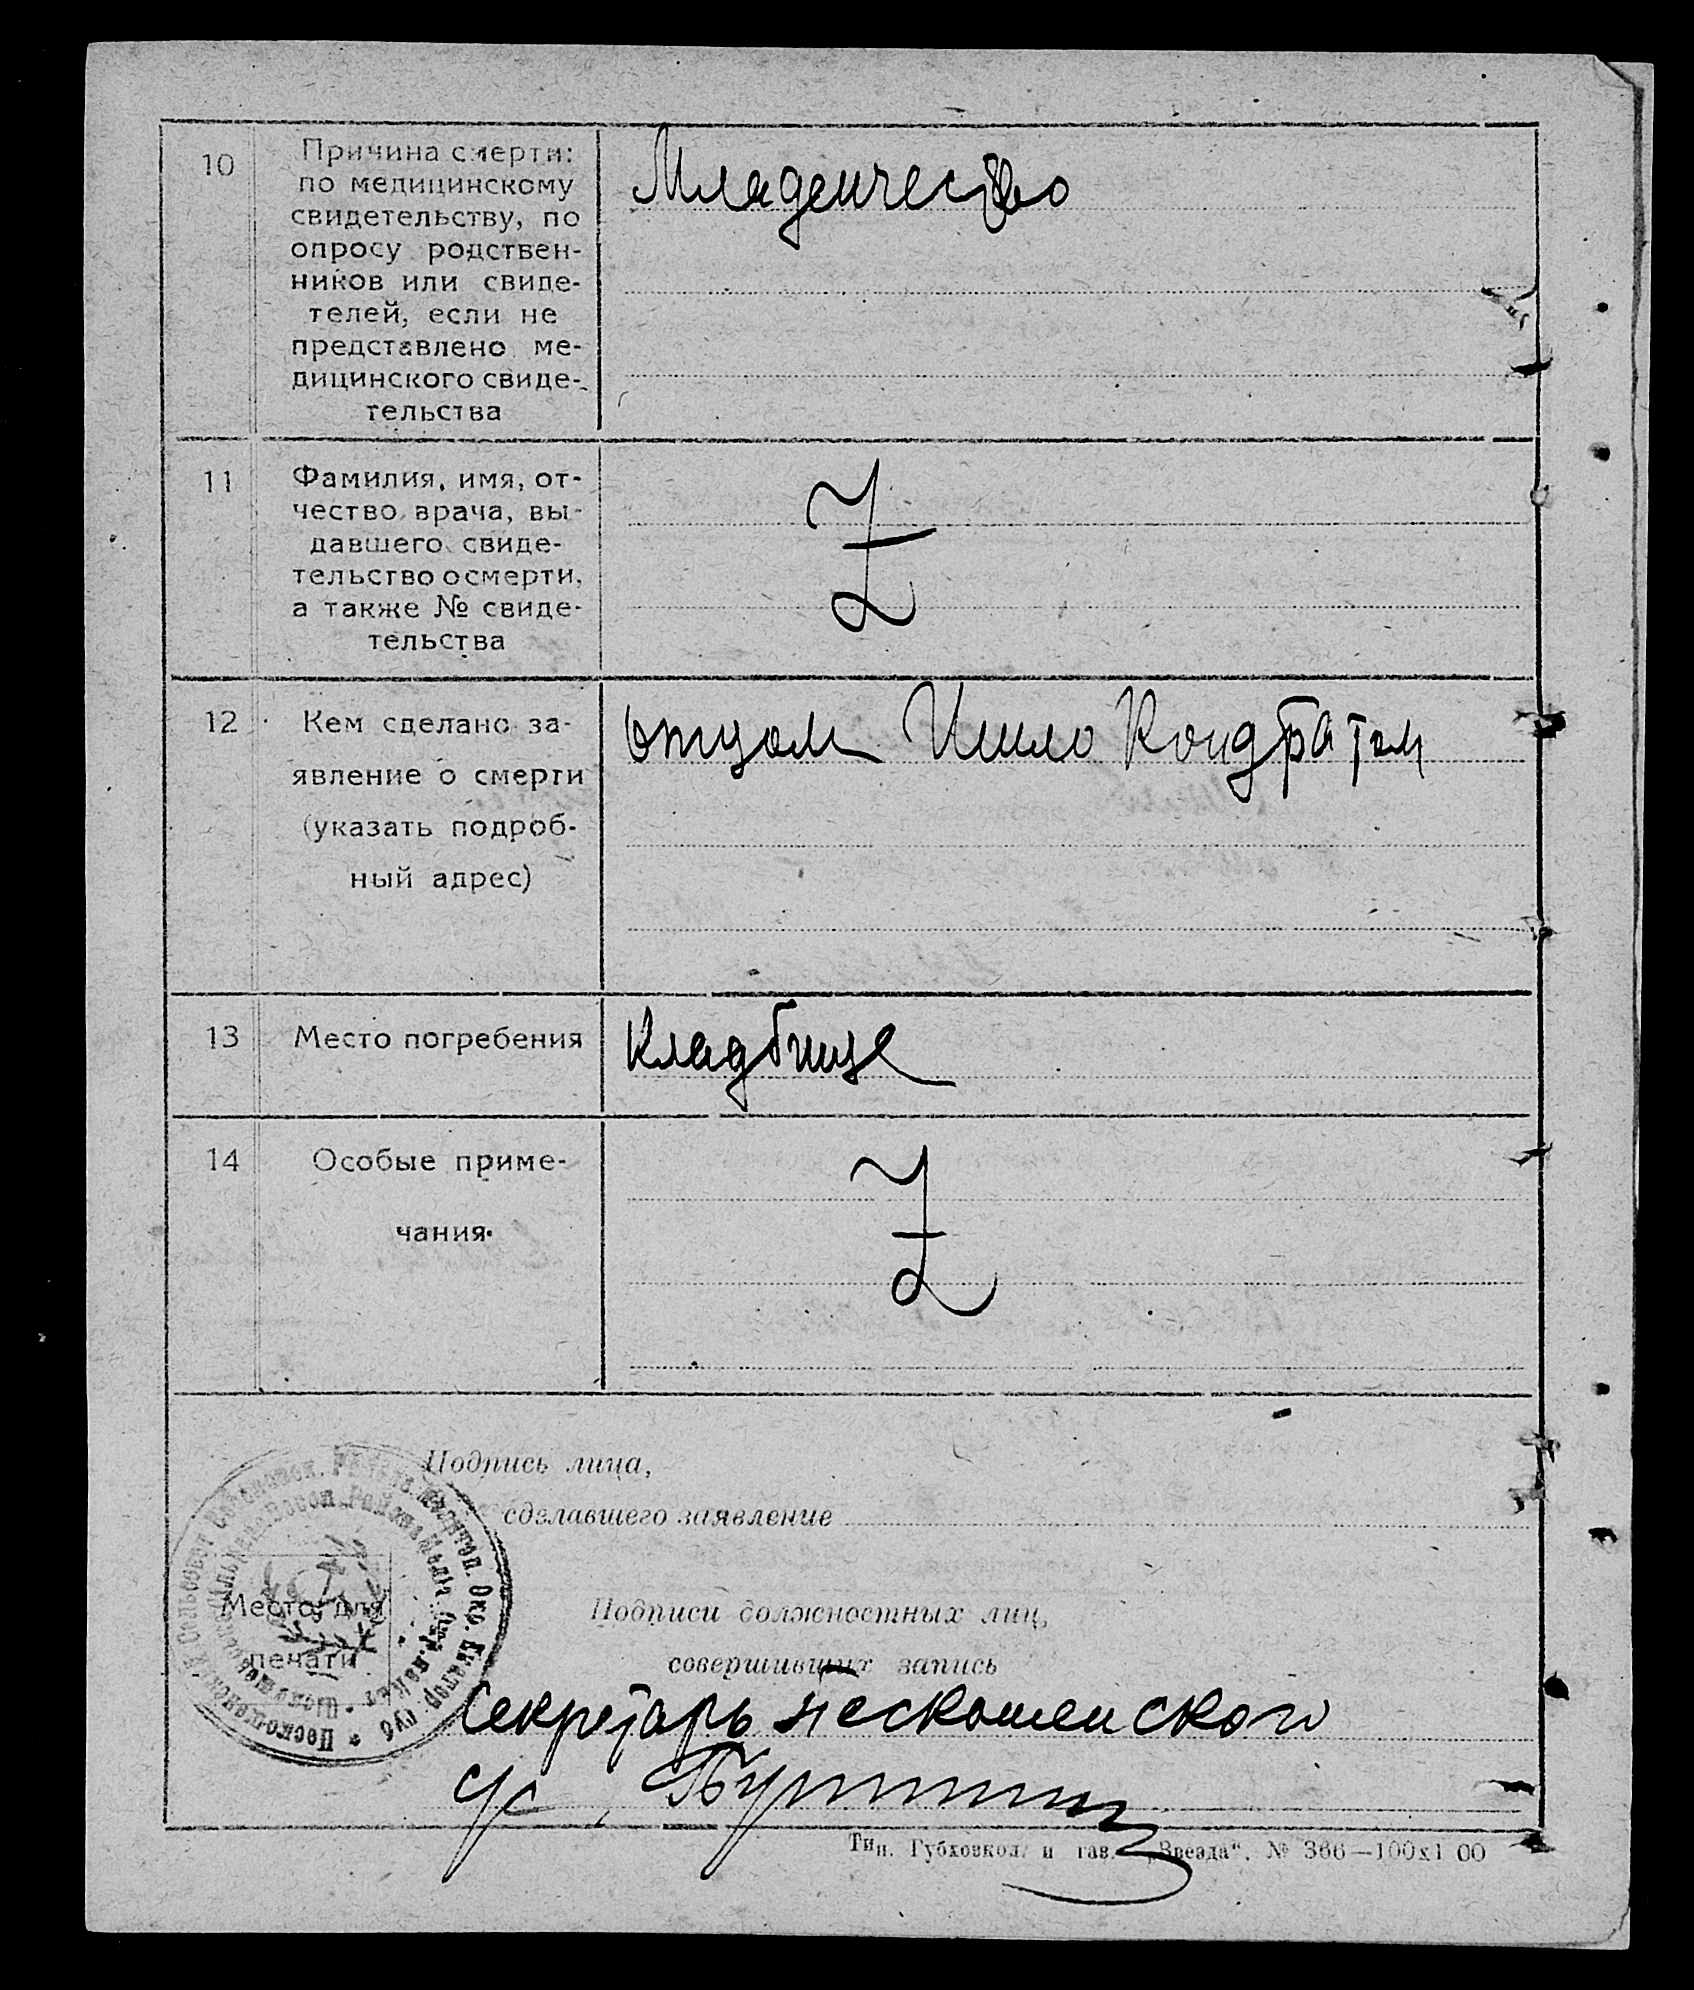 10
Причина смерти:
по медицинскому
свидетельству, по
опросу родствен-
ников или свиде-
телей, если не
представлено ме-
дицинского свиде-
тельства
Младенчество
11
Фамилия, имя, от-
чество врача, вы-
давшего свиде-
тельство о смерти,
а также № свиде-
тельства
Z
12
Кем сделано за-
явление о смерти
(указать подроб-
ный адрес)
отцом Шило Кондратом
13
Место погребения
Кладбище
14
Особые приме-
чания.
Z
Подпись лица,
сделавшего заявление
Место для
печати
Подписи должностных лиц,
совершивших запись
Секретарь Пескошенского
Тип. Губховкол. и газ. „Звезда“. № 366—100х1 00